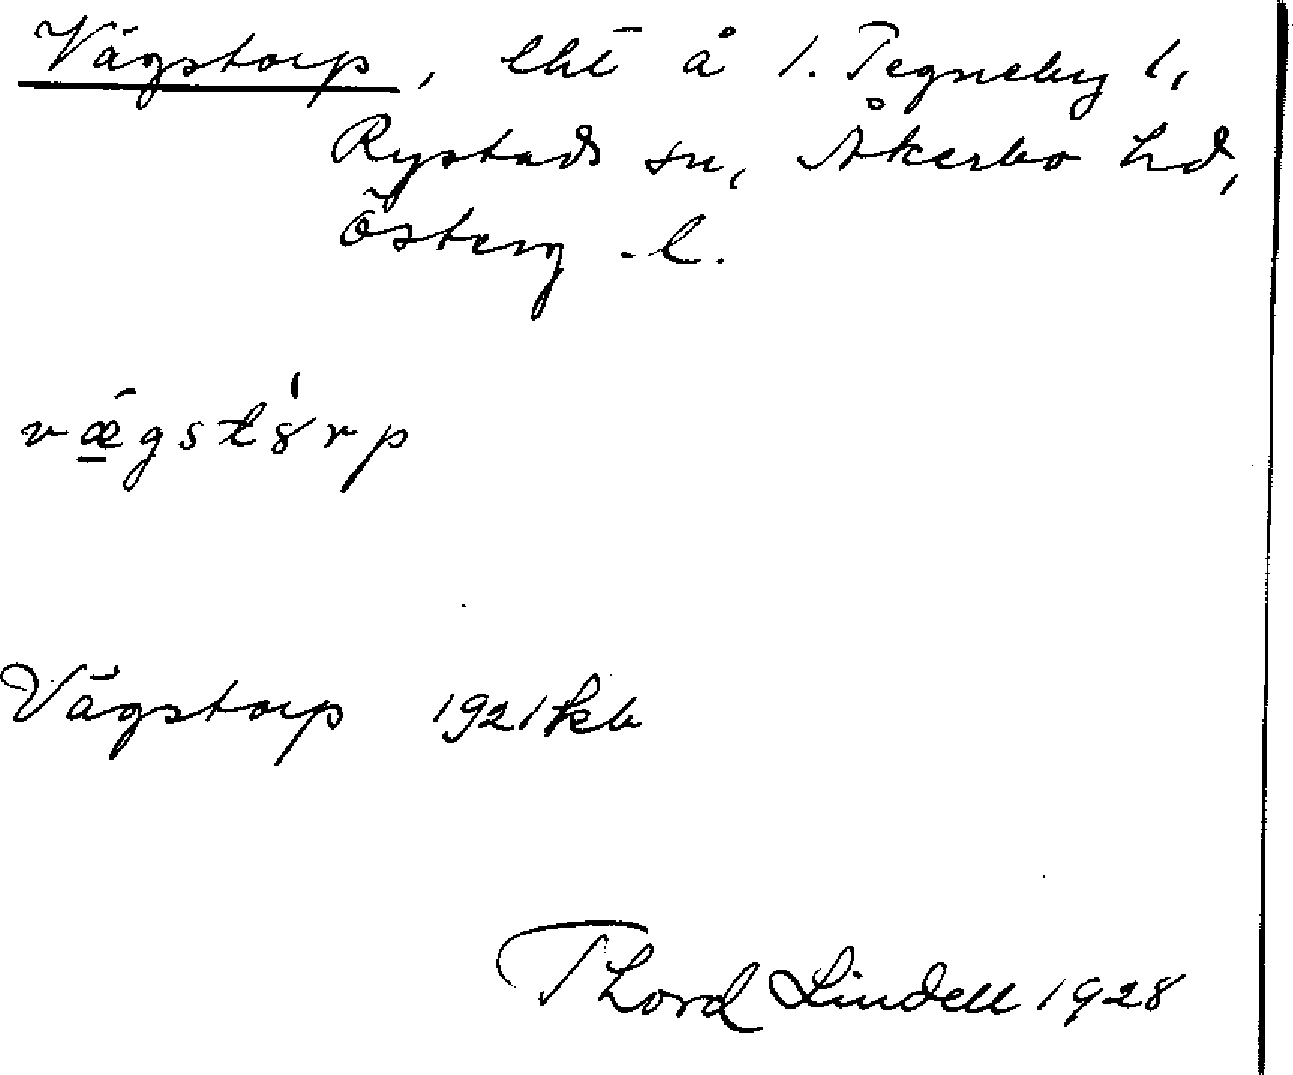 Vägstorp, lht å 1. Tegneby 1,
Rystads sn, Åkerbo hd,
Österg. l.
vǽgstórp
Vägstorp 1921 kb
Thord Lindell 1928